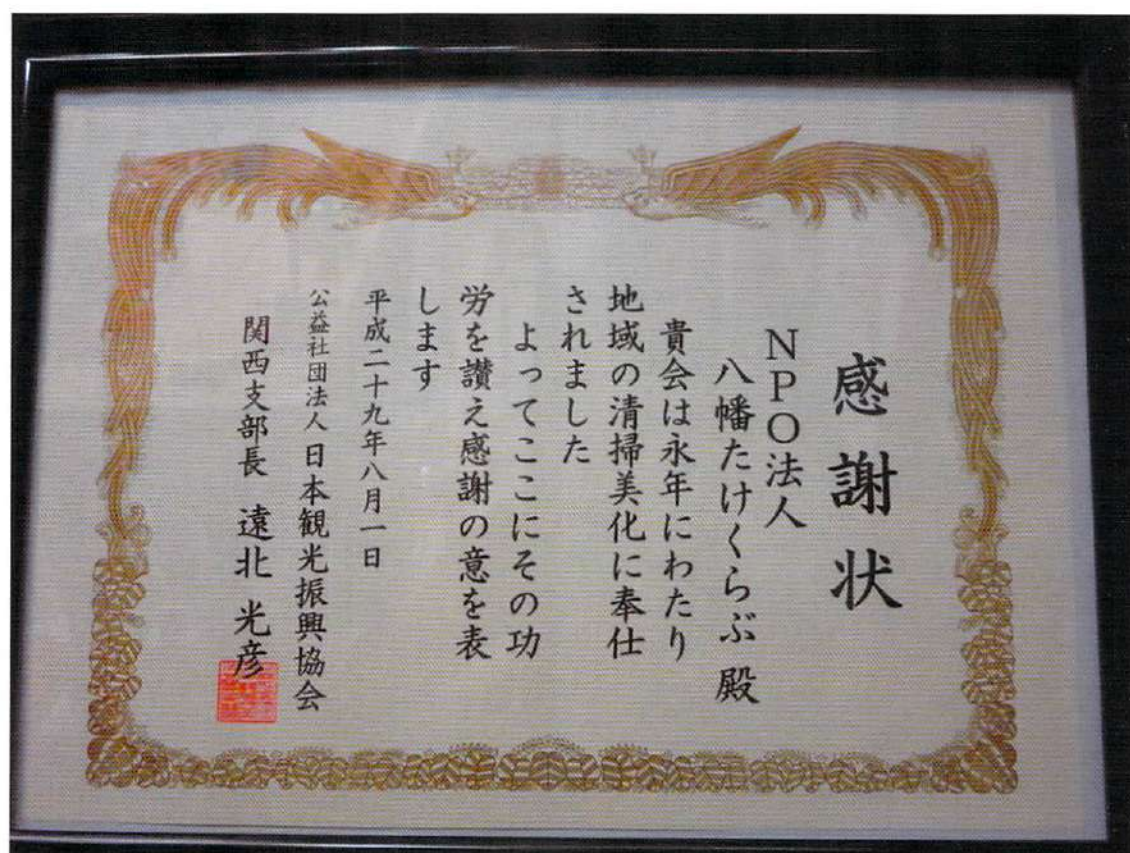 感謝状
NPO法人
八幡たけくらぶ 殿
貴会は永年にわたり
地域の清掃美化に奉仕
されました
よってここにその功
労を讃え感謝の意を表
します
平成二十九年八月一日
公益社団法人 日本観光振興協会
関西支部長 遠北 光彦